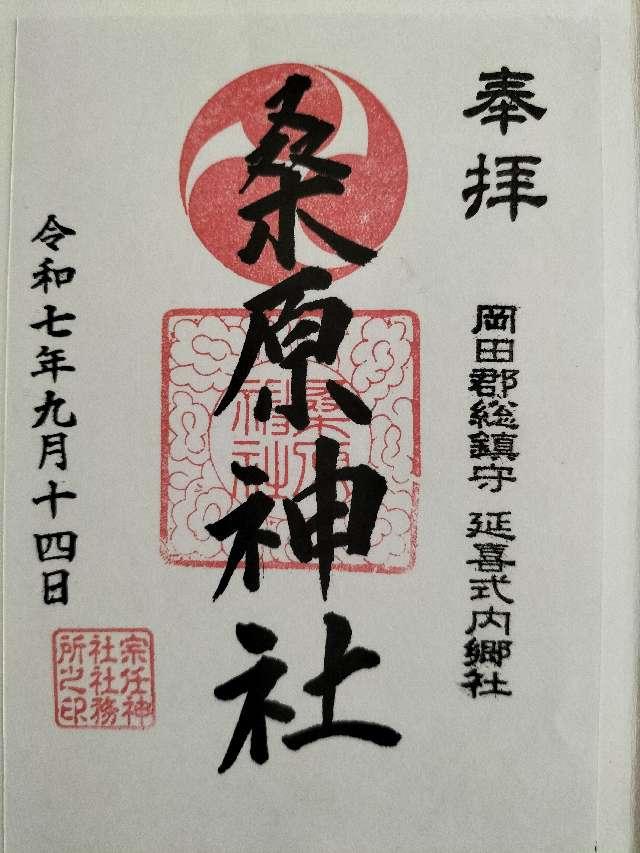 奉拝
岡田郡総鎮守 延喜式内郷社
桑原神社
桑原
神社
令和七年九月十四日
宗任神
社社務
所之印